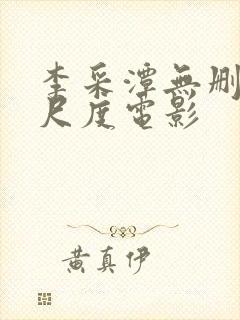 李采潭無删
尺度電影
黄真伊